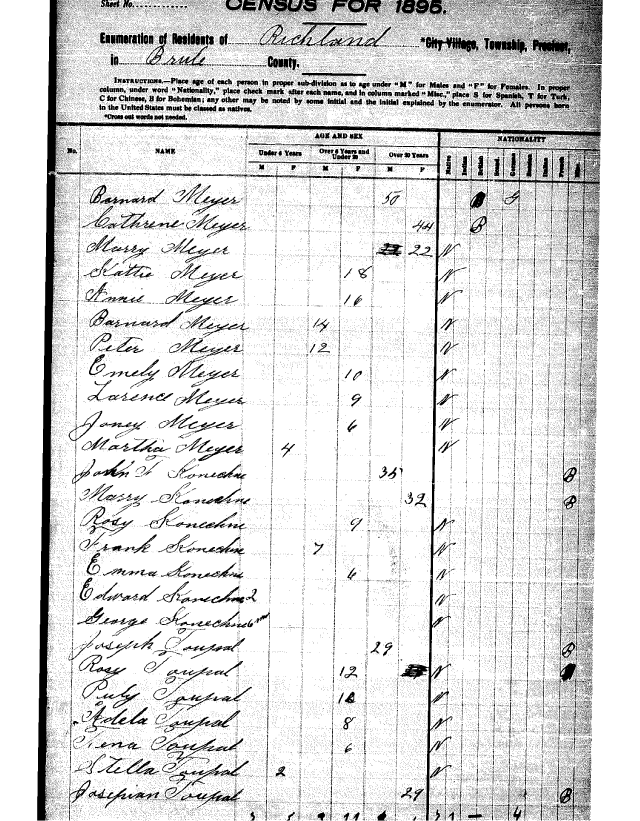 Sheet No.
CENSUS FOR 1895.
Enumeration of Residents of Richland *City Village, Township, Precinct,
in Brule County.
INSTRUCTIONS.—Place age of each person in proper sub-division as to age under "M" for Males and "F" for Females. In proper
column, under word "Nationality," place check mark after each name, and in column marked "Misc.," place S for Spanish, T for Turk,
C for Chinese, B for Bohemian; any other may be noted by some initial and the initial explained by the enumerator. All persons born
in the United States must be classed as natives.
*Cross out words not needed.
AGE AND SEX NATIONALITY
No. NAME Under 6 Years Over 6 Years and Under 20 Over 20 Years
M F M F M F
Barnard Meyer 50 G
Cathrene Meyer 44 B
Marry Meyer 22 N
Kattie Meyer 18 N
Annie Meyer 16 N
Barnard Meyer 14 N
Peter Meyer 12 N
Emely Meyer 10 N
Larence Meyer 9 N
Joney Meyer 6 N
Martha Meyer 4 N
John F Konechne 35 B
Marry Konechne 32 B
Rosy Konechne 9 N
Frank Konechne 7 N
Emma Konechne 6 N
Edward Konechne 2 N
George Konechne 6 N
Joseph Toupal 29 B
Rosy Toupal 12 N
Puly Toupal N
Adela Toupal 8 N
Tena Toupal 6 N
Stella Toupal 2 N
Josephan Toupal 29 B